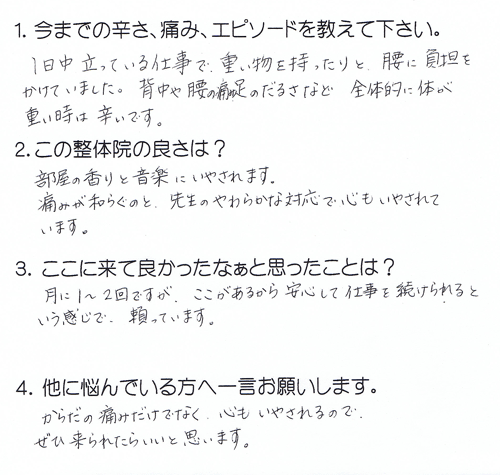 1. 今までの辛さ、痛み、エピソードを教えて下さい。
1日中立っている仕事で、重い物を持ったりと、腰に負担を
かけていました。背中や腰の痛足のだるさなど 全体的に体が
重い時は 辛いです。
2.この整体院の良さは？
部屋の香りと音楽にいやされます。
痛みが和らぐのと、先生のやわらかな対応で心もいやされて
います。
3. ここに来て良かったなぁと思ったことは？
月に1～2回ですが、ここがあるから安心して仕事を続けられると
いう感じで、頼っています。
4. 他に悩んでいる方へ一言お願いします。
からだの痛みだけでなく、心もいやされるので、
ぜひ来られたらいいと思います。